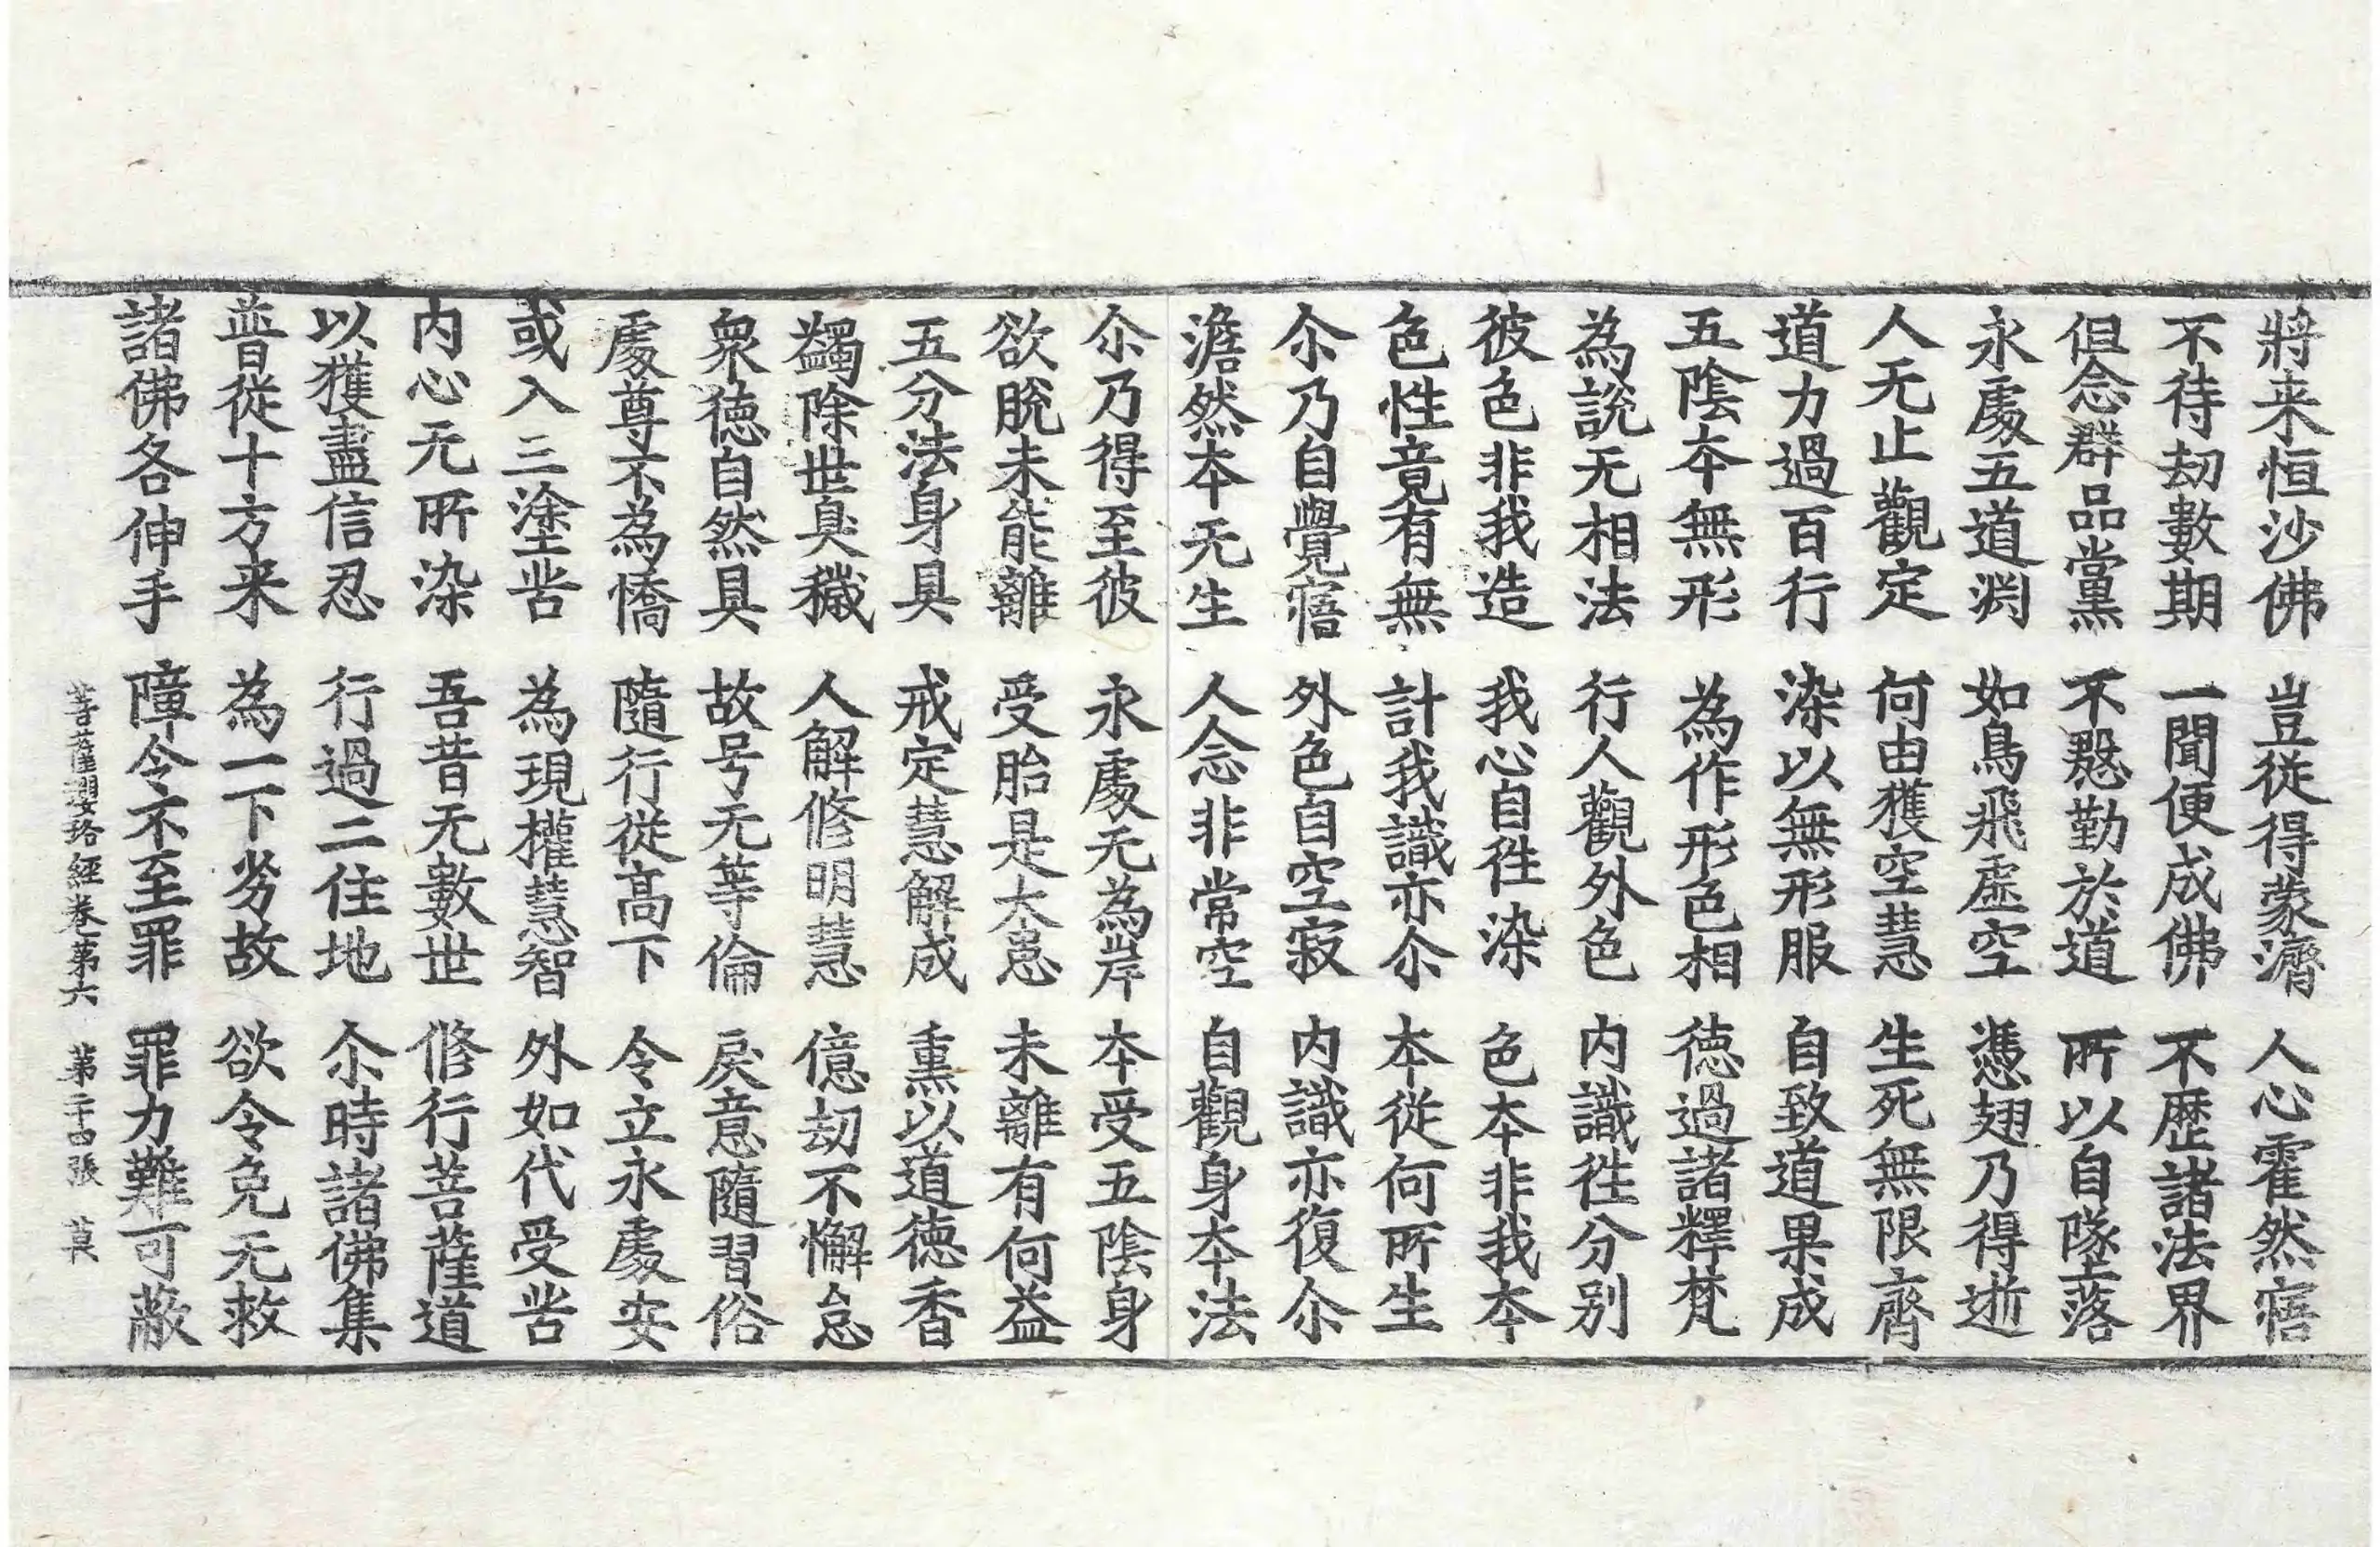 將来恒沙佛　豈從得蒙濟　人心霍然寤
不待劫數期　一聞便成佛　不歷諸法界
但念群品黨　不慇勤於道　所以自墜落
永處五道渕　如鳥飛虛空　憑翅乃得逝
人无止觀定　何由獲空慧　生死無限齊
道力過百行　染以無形服　自致道果成
五陰本無形　為作形色相　德過諸釋梵
為說无相法　行人觀外色　内識往分別
彼色非我造　我心自往染　色本非我本
色性竟有無　計我識亦尒　本從何所生
尒乃自覺寤　外色自空寂　内識亦復尒
澹然本无生　人念非常空　自觀身本法
尒乃得至彼　永處无為岸　本受五陰身
欲脫未能離　受胎是大患　未離有何益
五分法身具　戒定慧解成　熏以道德香
蠲除世臭穢　人解修明慧　億劫不懈怠
衆德自然具　故号无等倫　戾意隨習俗
處尊不為憍　隨行從高下　令立永處安
或入三塗苦　為現權慧智　外如代受苦
内心无所染　吾昔无數世　修行菩薩道
以獲盡信忍　行過二住地　尒時諸佛集
普從十方来　為一下劣故　欲令免无救
諸佛各伸手　障令不至罪　罪力難可蔽
菩薩瓔珞經卷第六　第二十四張　莫